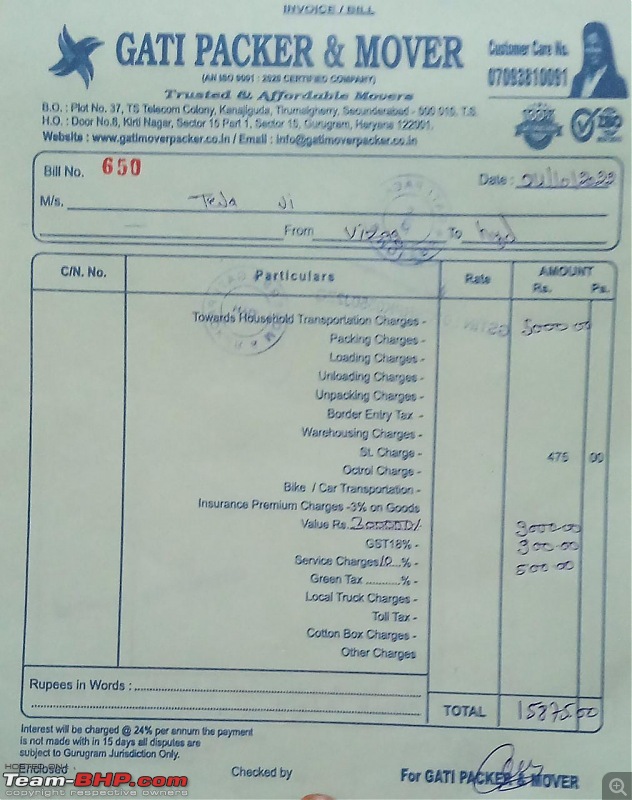 INVOICE / BILL
GATI PACKER & MOVER
(AN ISO 9001 : 2026 CERTIFIED COMPANY)
Trusted & Affordable Movers
Customer Care No.
07093810091
B.O. : Plot No. 37, TS Telecom Colony, Kanajiguda, Tirumalgherry, Secunderabad - 500 015. T.S.
H.O. : Door No.8, Kirti Nagar, Sector 15 Part 1, Sector 15, Gurugram, Haryana 122001.
Website : www.gatimoverpacker.co.in / Email : info@gatimoverpacker.co.in
100%
ISO
Bill No. 650
Date :
M/s. Teja Ji
From Vizag To hyd
C/N. No. Particulars Rate AMOUNT
Rs. Ps.
Towards Household Transportation Charges - 5000 00
Packing Charges -
Loading Charges -
Unloading Charges -
Unpacking Charges -
Border Entry Tax -
Warehousing Charges -
St. Charge - 475 00
Octroi Charge -
Bike / Car Transportation -
Insurance Premium Charges -3% on Goods
Value Rs.
GST18% - 900-00
Service Charges10...% - 500-00
Green Tax ...........% -
Local Truck Charges -
Toll Tax -
Cotton Box Charges -
Other Charges
Rupees in Words :
TOTAL 15875.00
Interest will be charged @ 24% per annum the payment
is not made with in 15 days all disputes are
subject to Gurugram Jurisdiction Only.
Enclosed Checked by For GATI PACKER & MOVER
HOSTED ON :
Team-BHP.com
copyright respective owners